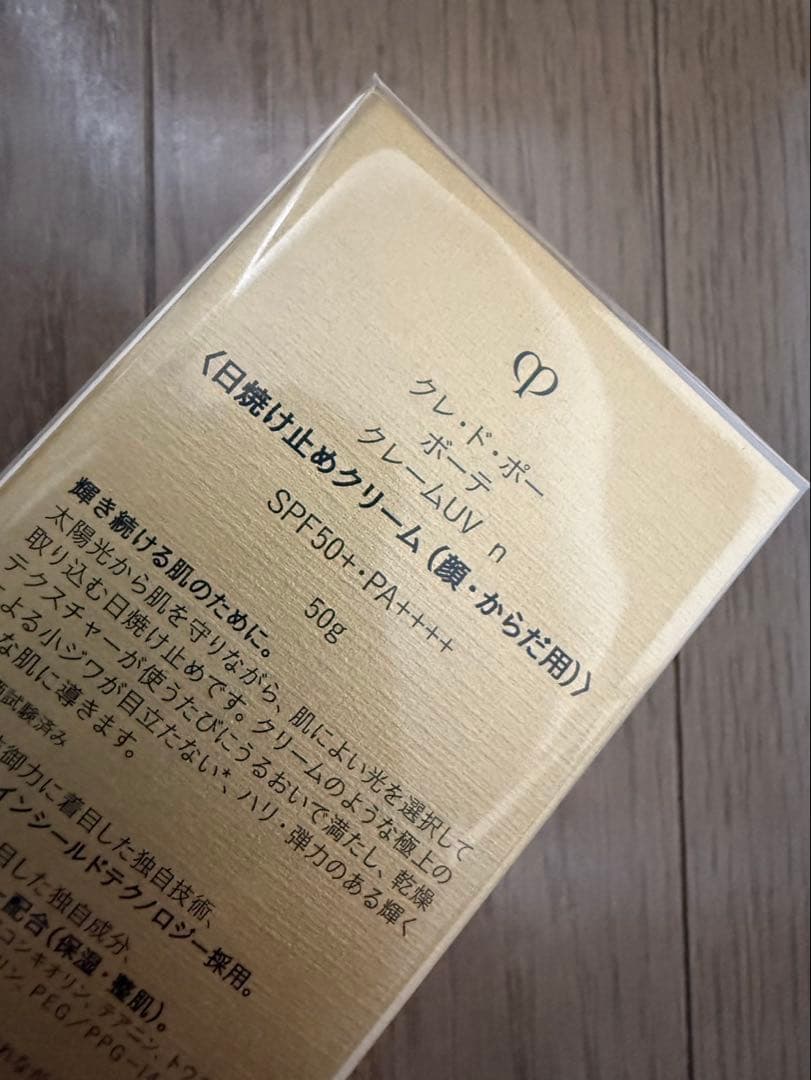 クレ・ド・ポー
ボーテ
クレームUV n
〈日焼け止めクリーム（顔・からだ用）〉
SPF50+・PA++++
50g
輝き続ける肌のために。
太陽光から肌を守りながら、肌によい光を選択して
取り込む日焼け止めです。クリームのような極上の
テクスチャーが使うたびにうるおいで満たし、乾燥
よる小ジワが目立たない*、ハリ・弾力のある輝く
な肌に導きます。
試験済み
御力に着目した独自技術、
インシールドテクノロジー採用。
目した独自成分、
配合（保湿・整肌）。
コンキオリン、テアニン、トウ
リン、PEG/PPG-14